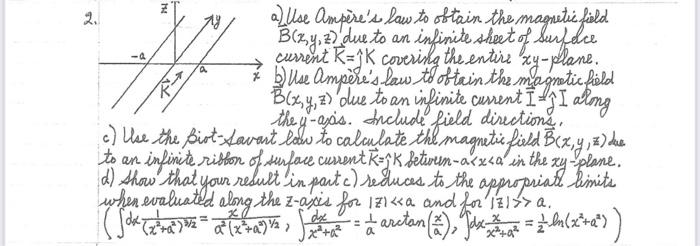 2.
z
y
-a
a
x
K⃗
a) Use Ampère's law to obtain the magnetic field
B⃗(x,y,z) due to an infinite sheet of surface
current K⃗=ĵK covering the entire xy-plane.
b) Use Ampère's law to obtain the magnetic field
B⃗(x,y,z) due to an infinite current I⃗=ĵI along
the y-axis. Include field directions.
c) Use the Biot-Savart law to calculate the magnetic field B⃗(x,y,z) due
to an infinite ribbon of surface current K⃗=ĵK between -a<x<a in the xy-plane.
d) Show that your result in part c) reduces to the appropriate limits
when evaluated along the z-axis for |z|<<a and for |z|>>a.
(∫dx 1/(x²+a²)^{3/2} = x/(a²(x²+a²)^{1/2}), ∫dx/(x²+a²) = 1/a arctan(x/a), ∫dx x/(x²+a²) = 1/2 ln(x²+a²))